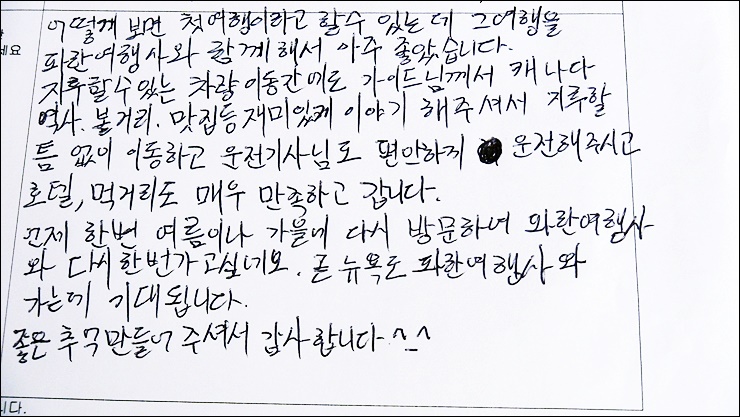 세요
어떻게 보면 첫여행이라고 할수 있는데 그여행을
파란여행사와 함께해서 아주 좋았습니다.
지루할수있는 차량이동간에도 가이드님께서 캐나다
역사. 볼거리. 맛집등재미있게 이야기 해주셔서 지루할
틈 없이 이동하고 운전기사님도 편안하게 운전해주시고
호텔, 먹거리도 매우 만족하고 갑니다.
언제 한번 여름이나 가을에 다시 방문하여 파란여행사
와 다시한번가고싶네요. 곧 뉴욕도 파란여행사와
가는데 기대됩니다.
좋은 추억만들어 주셔서 감사합니다 ^_^
니다.